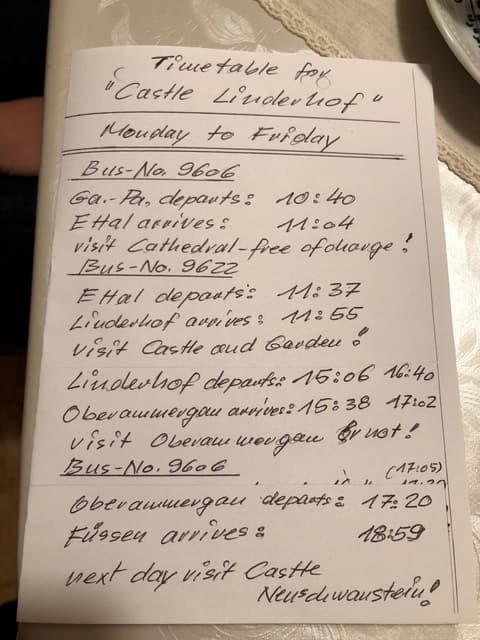 Timetable for
"Castle Linderhof"
Monday to Friday
Bus-No. 9606
Ga.-Pa, departs: 10:40
Ettal arrives: 11:04
visit Cathedral-free of charge!
Bus-No. 9622
Ettal departs: 11:37
Linderhof arrives: 11:55
visit Castle and Garden!
Linderhof departs: 15:06 16:40
Oberammergau arrives: 15:38 17:02
visit Oberammergau or not!
Bus-No. 9606 (17:05)
Oberammergau departs: 17:20
Füssen arrives: 18:59
next day visit Castle
Neuschwanstein!